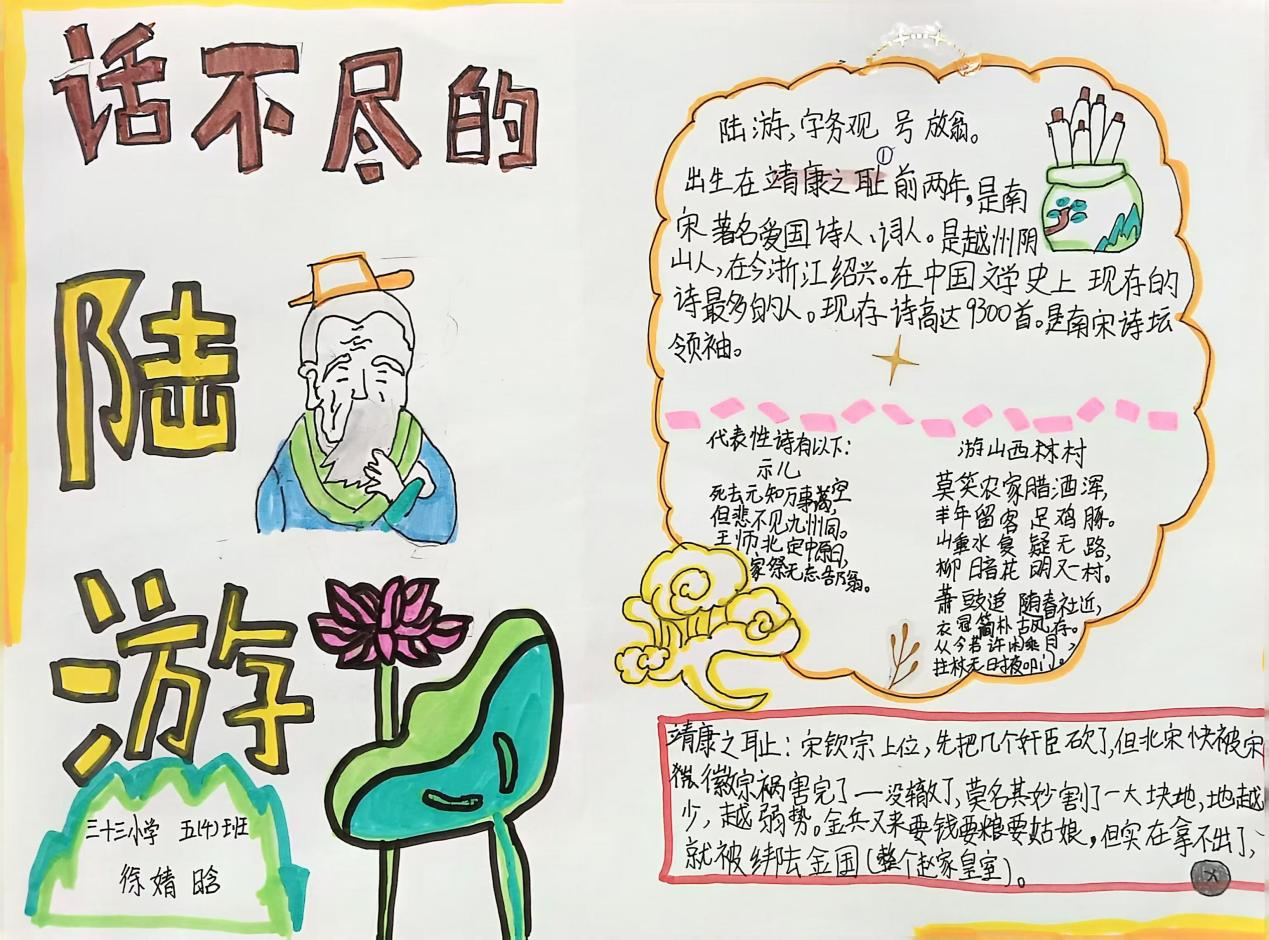 话不尽的
陆
游
三十三小学 五(4)班
徐婧晗
陆游,字务观 号放翁。
①
出生在靖康之耻前两年,是南
宋著名爱国诗人、词人。是越州阴
山人,在今浙江绍兴。在中国文学史上 现存的
诗最多的人。现存诗高达9300首。是南宋诗坛
领袖。
代表性诗有以下:
示儿
死去元知万事萬空
但悲不见九州同。
王师北定中原日,
家祭无忘告乃翁。
游山西林村
莫笑农家腊酒浑,
丰年留客足鸡豚。
山重水复疑无路,
柳暗花明又一村。
萧鼓追随春社近,
衣冠简朴古风存。
从今若许闲乘月,
拄杖无时夜叩门。
靖康之耻:宋钦宗上位,先把几个奸臣砍了,但北宋快被宋
徽宗祸害完了—没辙了,莫名其妙割了一大块地,地越
少,越弱势。金兵又来要钱要粮要姑娘,但实在拿不出了,
就被绑去金国(整个赵家皇室)。